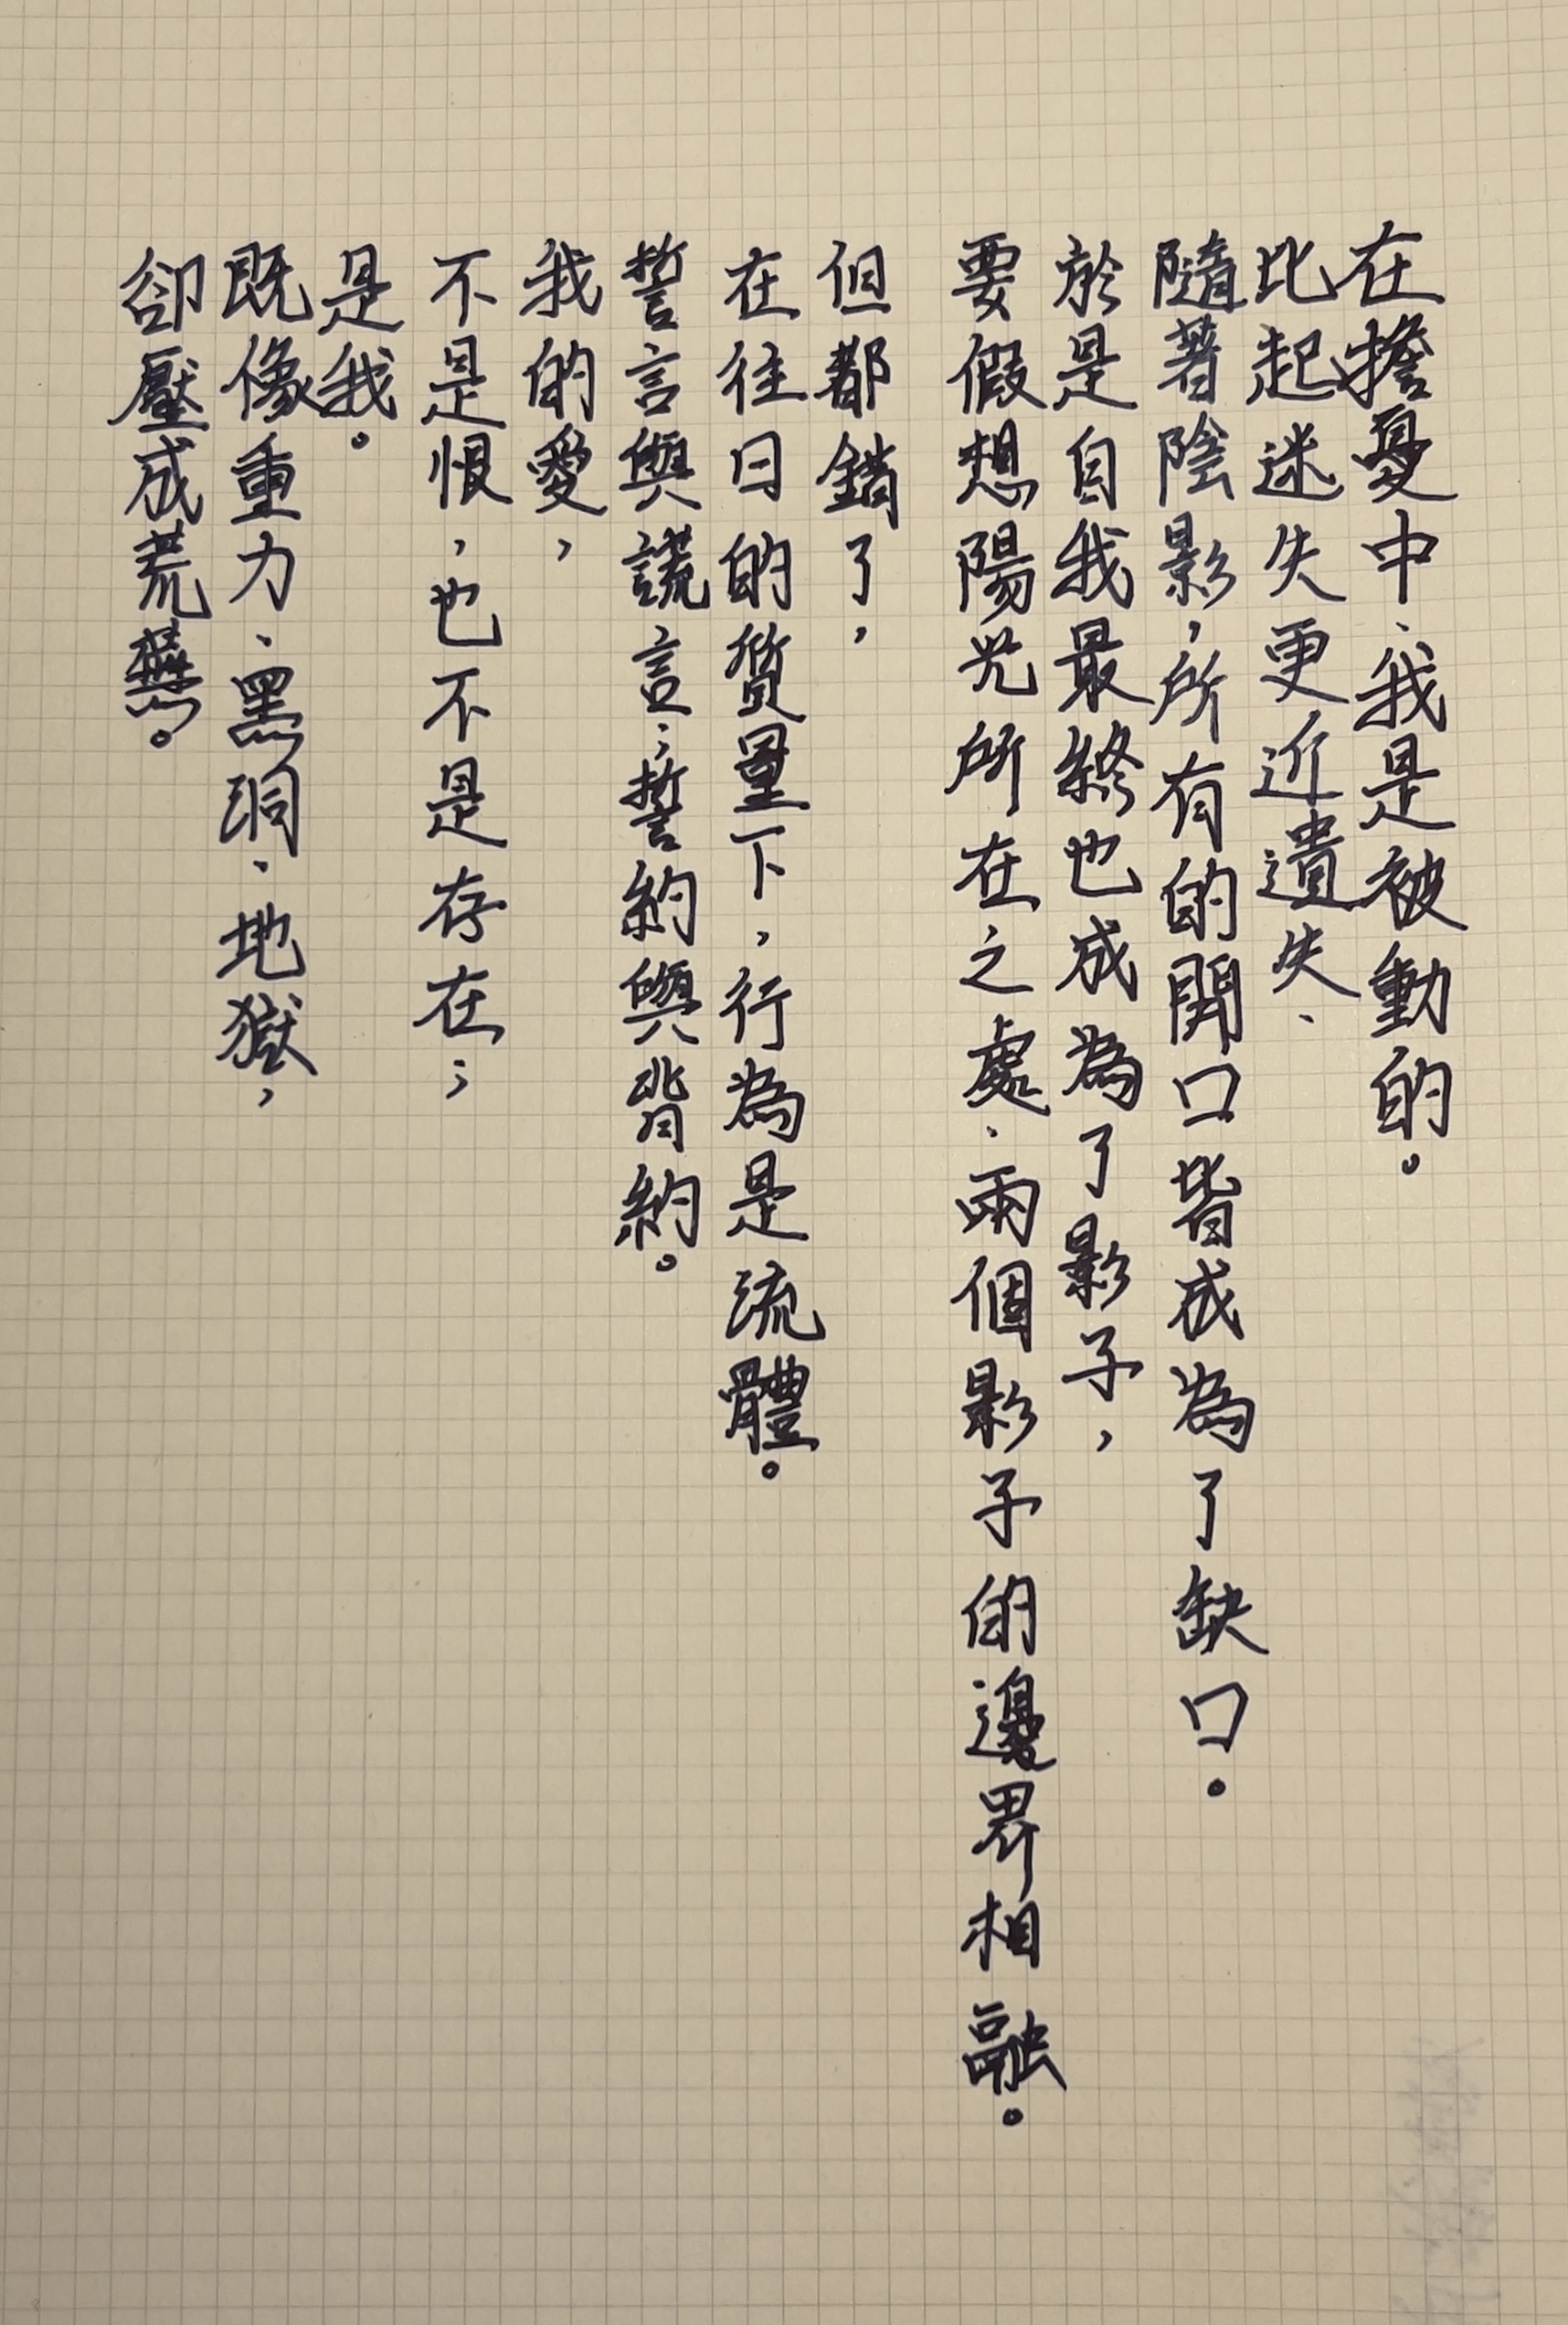 在擔憂中、我是被動的。
比起迷失更近遺失、
隨著陰影，所有的開口皆成為了缺口。
於是自我最終也成為了影子，
要假想陽光所在之處、兩個影子的邊界相融。
但都錯了，
在往日的質量下，行為是流體。
誓言與謊言；誓約與背約。
我的愛，
不是恨，也不是存在；
是我。
既像重力、黑洞、地獄，
卻壓成荒蕪。